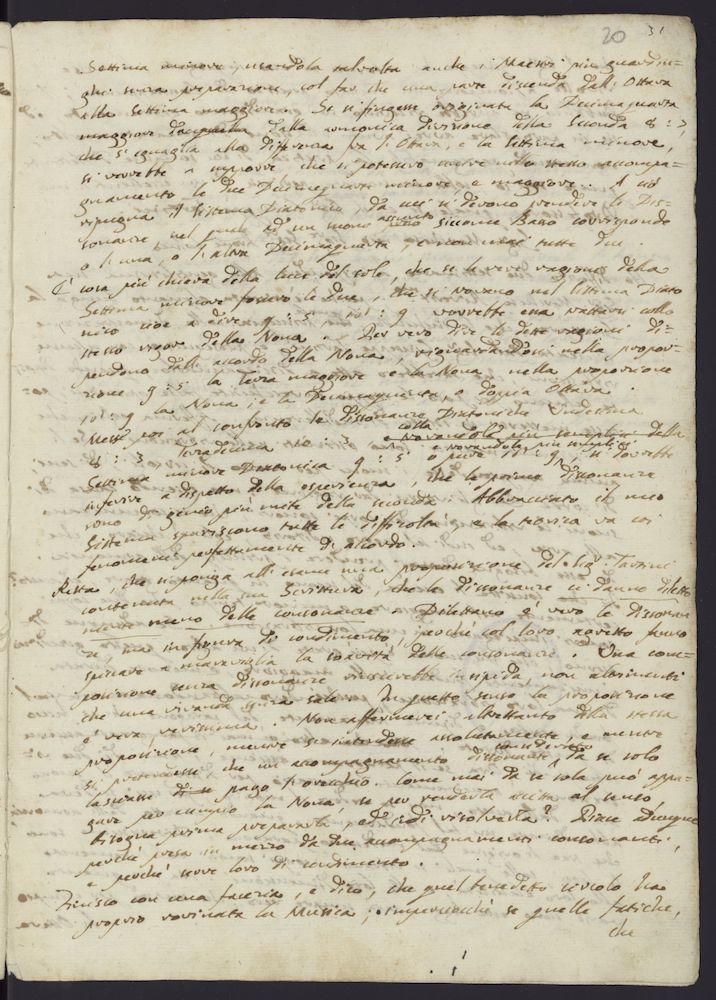 20 31
Settima minore, usandola talvolta anche i Maestri più guardin=
ghi senza preparazione, col far che una parte discenda dall'Ottava
alla Settima maggiore. Se si fingesse originata la Decimaquarta
maggiore dalla armonica divisione della Seconda 8:7,
che s'eguaglia alla differenza fra l'Ottava, e la Settima minore,
si verrebbe a supporre, che si potessero unire nello stesso accompa=
gnamento le due Decimequarte minore, e maggiore. A ciò
ripugna il Sistema Diatonico, da cui si devono prendere le Dis=
sonanze nel quale ad un suono assunto siccome Basso corrisponde
o l'una, o l'altra Decimaquarta, e non mai tutte due.
È cosa più chiara della luce del sole, che se le vere ragioni della
Settima minore fossero le due, che si trovano nel Sistema Diato
nico cioè a dire 9:5, 16:9 dovrebbe essa trattarsi collo
stesso rigore della Nona. Per vero dire le dette ragioni di=
pendono dall'accordo della Nona, vigoreggiandosi nella propor=
zione 9:5 la Terza maggiore e la Nona, nella proporzione
16:9 la Nona, e la Decimaquinta, o doppia Ottava.
Messe poi al confronto le dissonanze Diatoniche Undecima
8:3, Terzadecima 10:3 colla
Settima minore Diatonica 9:5, o pure 16:9, e trovandole più semplici si dovrebbe
inferire a dispetto della esperienza, che le prime dissonanze
sono di genio più mite della seconda. Abbracciato il mio
Sistema spariscono tutte le difficoltà, e la teorica va coi
fenomeni perfettamente di accordo.
Resta, che si ponga all'esame una proposizione del Sig.r Tartini
contenuta nella sua Scrittura, che le dissonanze ci danno diletto
niente meno delle consonanze. Dilettano è vero le dissonan
ze, ma in forza di condimento, perché col loro aspetto fanno
spiccare a maraviglia la soavità delle consonanze. Una com=
posizione senza dissonanze riuscirebbe insipida, non altrimenti
che una vivanda senza sale. In questo senso la proposizione
è vera verissima. Non affermerei altrettanto della stessa
proposizione, mentre se intendesse assolutamente, e mentre
si pretendesse, che un accompagnamento dissonante considerato da se solo
lasciasse pago l'orecchio. Come mai da se sola può appa=
gare per esempio la Nona, se per renderla accetta al senso
bisogna prima prepararla, ed indi risolverla? Piace dunque
perché presa in mezzo da due accompagnamenti consonanti,
e perché serve loro di condimento.
Finisco con una facezia, e dico, che quel benedetto circolo ha
proprio rovinata la Musica; imperciocchè se quelle fatiche,
che